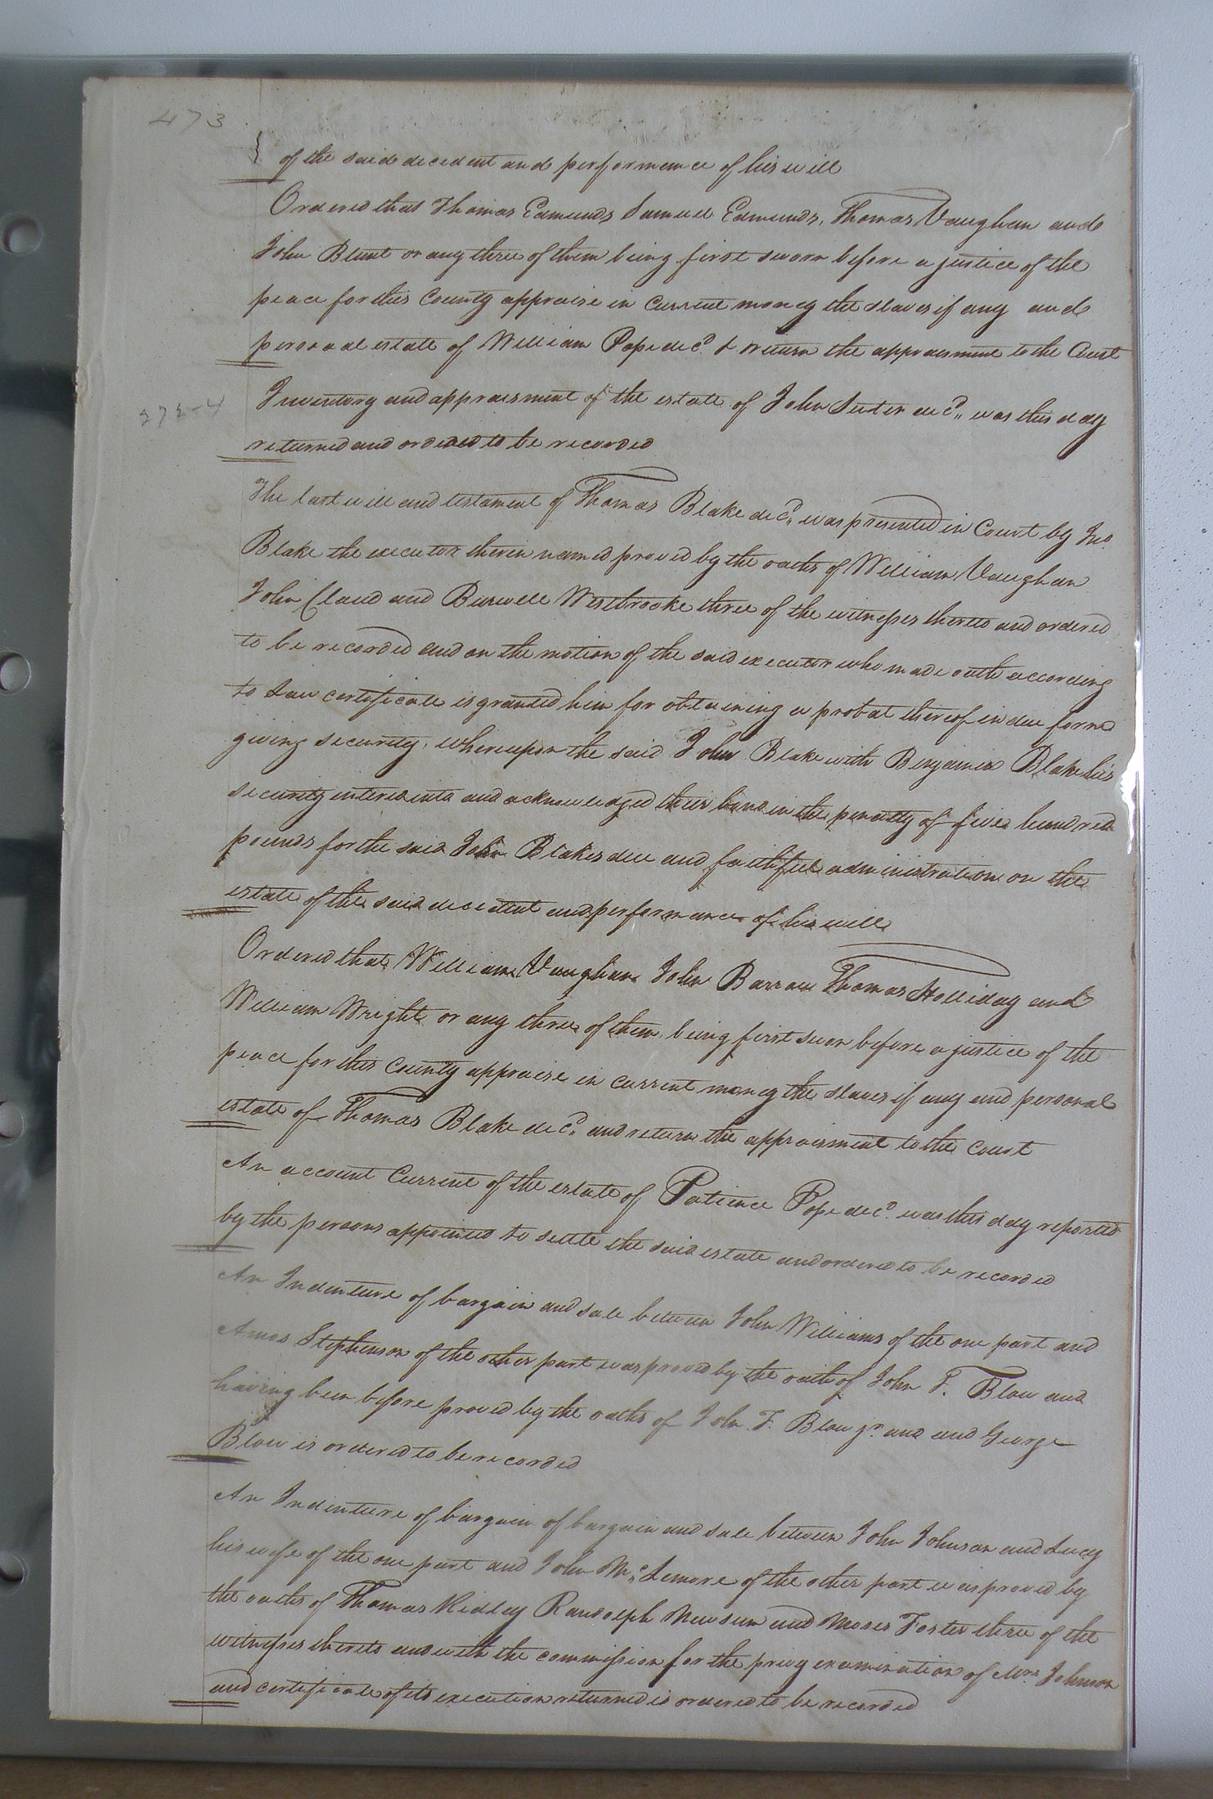 473
of the said decedent and performance of his will
Ordered that Thomas Edmunds Samuel Edmunds, Thomas Vaughan and
John Blunt or any three of them being first sworn before a justice of the
peace for this County appraise in current money the slaves if any and
personal estate of William Pope decd. & return the appraisment to the Court
272-4
Inventory and appraisment of the estate of John decd. was this day
returned and ordered to be recorded
The last will and testament of Thomas Blake decd. was presented in Court by Jno.
Blake the executor therein named proved by the oaths of William Vaughan
John Claud and Burwell Westbrooke three of the witnesses thereto and ordered
to be recorded and on the motion of the said executor who made oath according
to Law certificate is granted him for obtaining a probat thereof in due form
giving security, whereupon the said John Blake with Benjamin Blake his
security entered into and acknowledged their bond in the penalty of five hundred
pounds for the said John Blakes due and faithful administration on the
estate of the said decedent and performance of his will
Ordered that William Vaughan John Barrow Thomas Holliday and
William Wright or any three of them being first sworn before a justice of the
peace for this County appraise in current money the slaves if any and personal
estate of Thomas Blake decd. and return the appraisment to the Court
An account Current of the estate of Patience Pope decd. was this day reported
by the persons appointed to settle the said estate and ordered to be recorded
An Indenture of bargain and sale between John Williams of the one part and
Amos Stephenson of the other part was proved by the oath of John T. Blow and
having been before proved by the oaths of John T. Blow jr. and and George
Blow is ordered to be recorded
An Indenture of bargain of bargain and sale between John Johnson and Lucy
his wife of the one part and John McLemore of the other part was proved by
the oaths of Thomas Ridley Randolph Newsum and Moses Foster three of the
witnesses thereto and with the commission for the privy examination of Mrs. Johnson
and certificate of its execution returned is ordered to be recorded